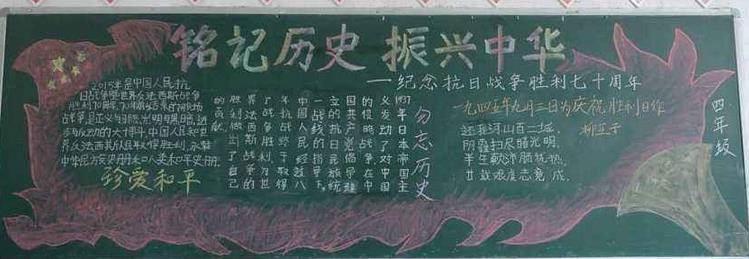 铭记历史 振兴中华
——纪念抗日战争胜利七十周年
2015年是中国人民抗
日战争暨世界反法西斯战争
胜利70周年,70年前结束的那场
战争,是正义与邪恶,光明与黑暗,进
步与反动的大博斗,中国人民和世
界反法西斯
珍爱和平
勿忘历史
1937年日本帝国主
义发动了对中国
的侵略战争,在中
国共产党倡导建
立的抗日民族统
一战线的指导下,
中国人民经过八
年抗战终于取得
了战争胜利,为世
界反法西斯战争的
胜利做出了自己
的贡献。
一九四五年九月三日为庆祝胜利日作
柳亚子
还我河山百二城,
阴霾扫尽睹光明。
半生
廿载艰虞志竟成。
四年级